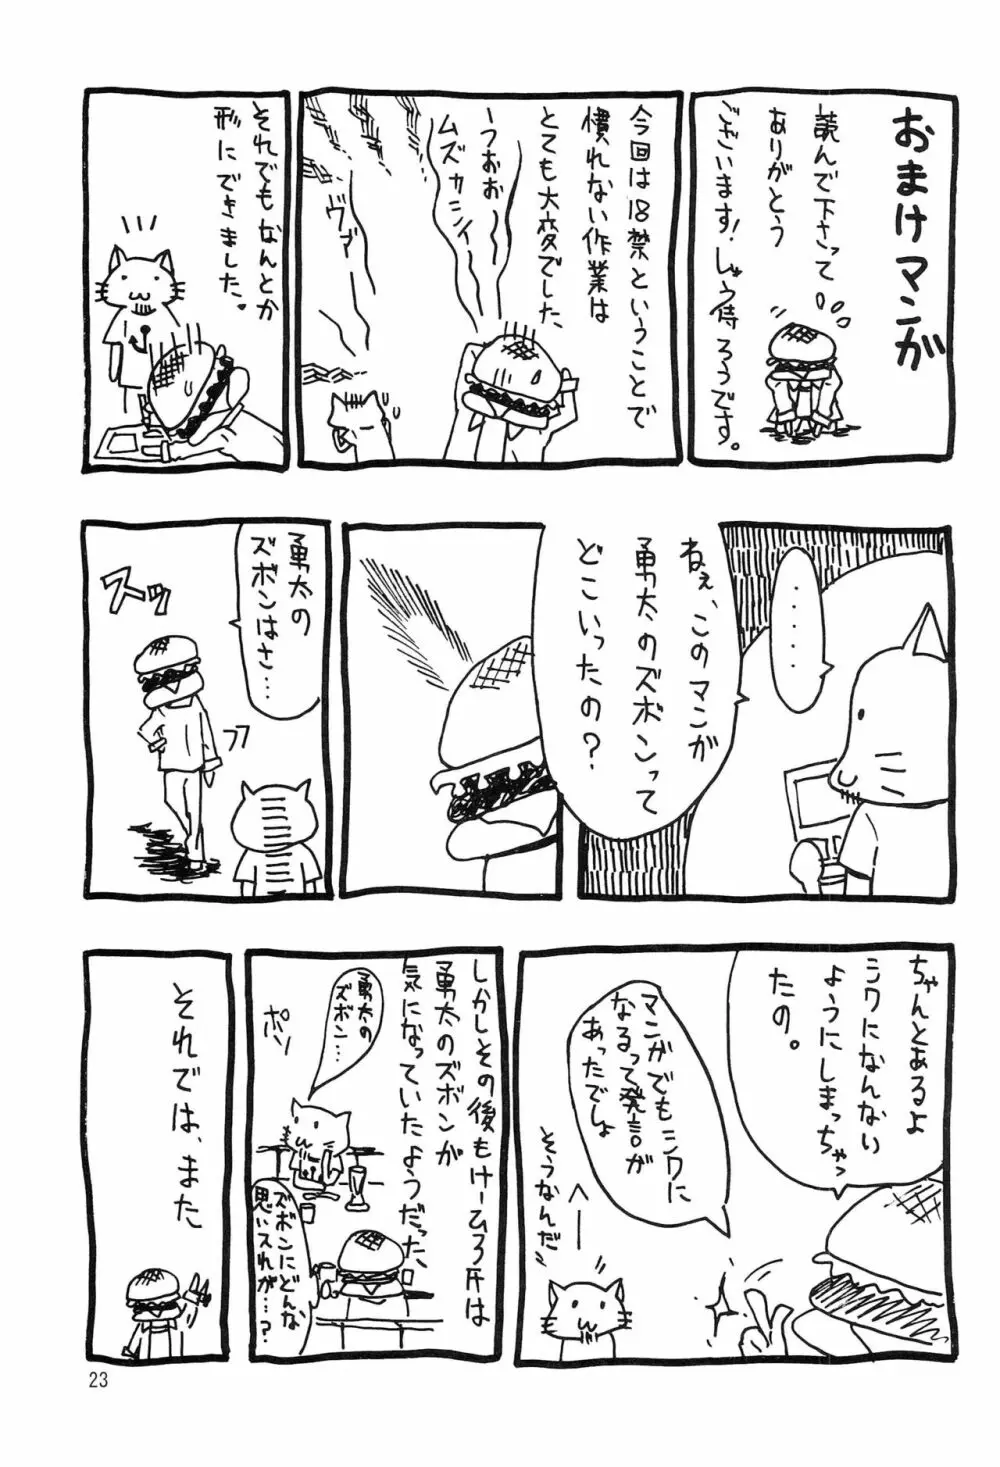 おまけマンガ
読んで下さって
ありがとう
ございます！しゅう侍ろうです。
今回は18禁ということで
慣れない作業は
とても大変でした、
うおお
ムズカシイ
ヴァー
それでもなんとか
形にできました。
‥‥‥
ねぇ、このマンガ
勇太のズボンって
どこいったの？
勇太の
ズボンはさ…
スッ
ﾌﾌ
ちゃんとあるよ
シワになんない
ようにしまっちゃっ
たの。
マンガでもシワに
なるって発言が
あったでしょ
へー
そうなんだ
しかしその後もけーひろ氏は
勇太のズボンが
気になっていたようだった、
勇太の
ズボン…
ポソ
ズボンにどんな
思い入れが…？
それでは、また
23